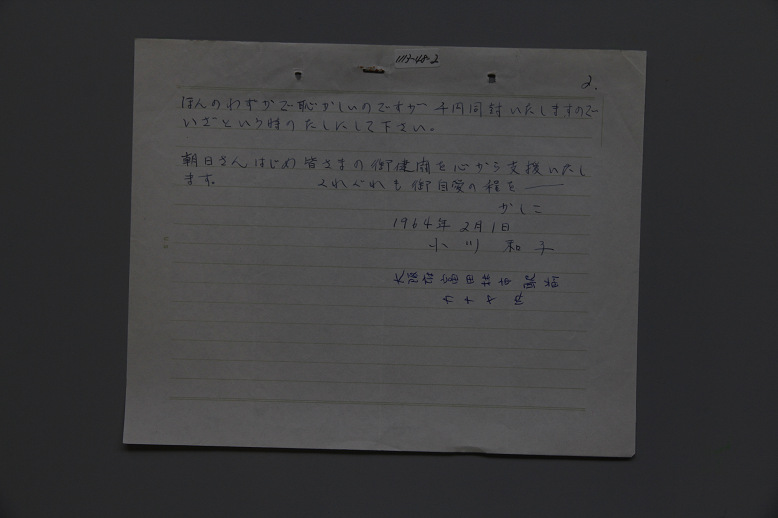 1113-48-2
2.
ほんのわずかで恥かしいのですが 千円同封いたしますので
いざという時のたしにして下さい。
朝日さんはじめ皆さまの御健闘を心から支援いたし
ます。 くれぐれも御自愛の程を——
かしこ
1964年 2月1日
小川 和子